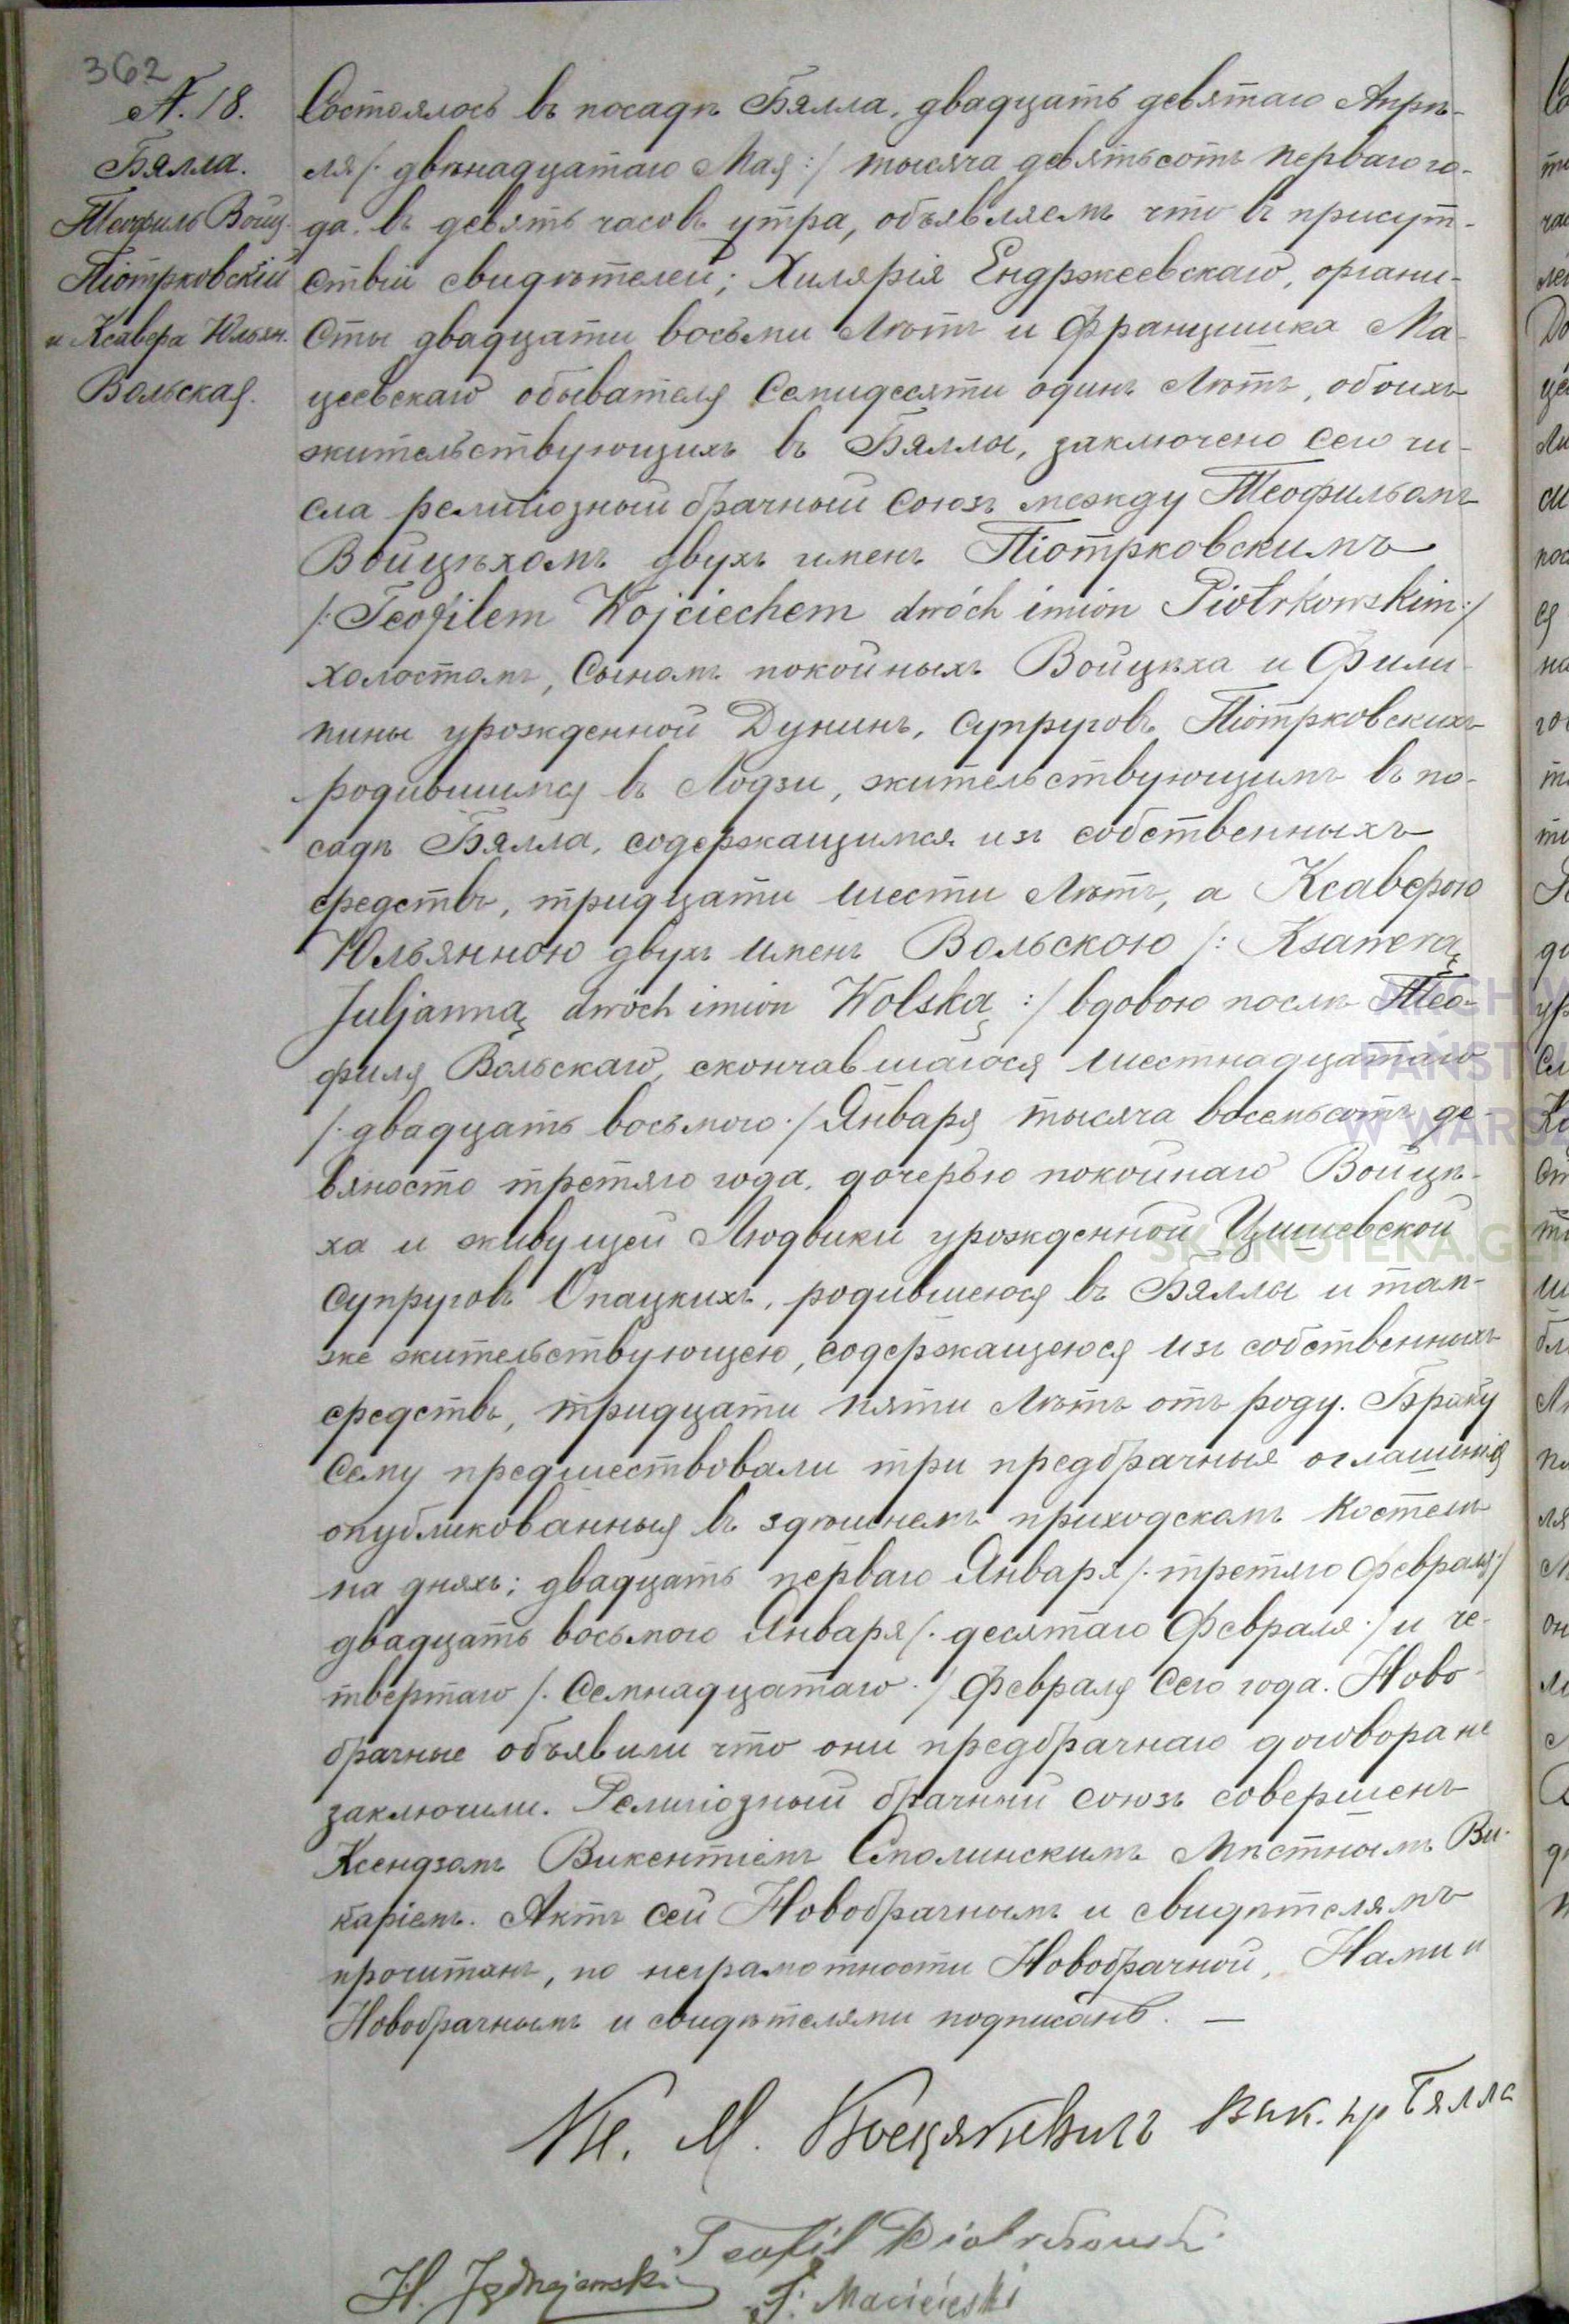 362
N. 18.
Бялла.
Теофиль Войц.
Піотрковскій
и Ксавера Юльян.
Вольская.
Состоялось въ посадѣ Бялла, двадцать девятаго Апрѣ-
ля /: двѣнадцатаго Мая :/ тысяча девятьсотъ перваго го-
да, въ девять часовъ утра, объявляемъ что въ присут-
ствіи свидѣтелей; Хилярія Ендржеевскаго, органи-
сты двадцати восьми лѣтъ и Францишка Ма-
цеевскаго обывателя семидесяти одинъ лѣтъ, обоихъ
жительствующихъ въ Бяллы, заключено сего чи-
сла религіозный брачный союзъ между Теофильомъ
Войцѣхомъ двухъ именъ Піотрковскимъ
/: Teofilem Wojciechem dwóch imion Piotrkowskim :/
холостомъ, сыномъ покойныхъ Войцѣха и Фили-
пины урожденной Дунинъ, супруговъ Піотрковскихъ
родившимся въ Лодзи, жительствующимъ въ по-
садѣ Бялла, содержащимся изъ собственныхъ
средствъ, тридцати шести лѣтъ, а Ксаверою
Юльянною двухъ именъ Вольскою /: Ksawerą
Juljanną dwóch imion Wolską :/ вдовою послѣ Тео-
филя Вольскаго, скончавшагося шестнадцатаго
/: двадцать восьмого :/ Января тысяча восемьсотъ де-
вяносто третяго года, дочерью покойнаго Войцѣ-
ха и живущей Людвики урожденной Цишевской
супруговъ Опацкихъ, родившеюся въ Бяллы и там-
же жительствующею, содержащеюся изъ собственныхъ
средствъ, тридцати пяти лѣтъ отъ роду. Браку
сему предшествовали три предбрачныя оглашенія
опубликованныя въ здѣшнемъ приходскомъ костелѣ
на дняхъ: двадцать перваго Января /: третяго Февраля :/
двадцать восьмого Января /: десятаго Февраля :/ и че-
твертаго /: семнадцатаго :/ Февраля сего года. Ново-
брачные объявили что они предбрачнаго договора не
заключили. Религіозный брачный союзъ совершенъ
Ксендзомъ Викентіемъ Смолинскимъ Мѣстнымъ Ви-
каріемъ. Актъ сей Новобрачнымъ и свидѣтелямъ
прочитанъ, по неграмотности Новобрачной, Нами и
Новобрачнымъ и свидѣтелями подписанъ. —
Кс. М. Вик. пр Бялла
Teofil Piotrkowski
H. Jędrzejewski
F. Maciejeski